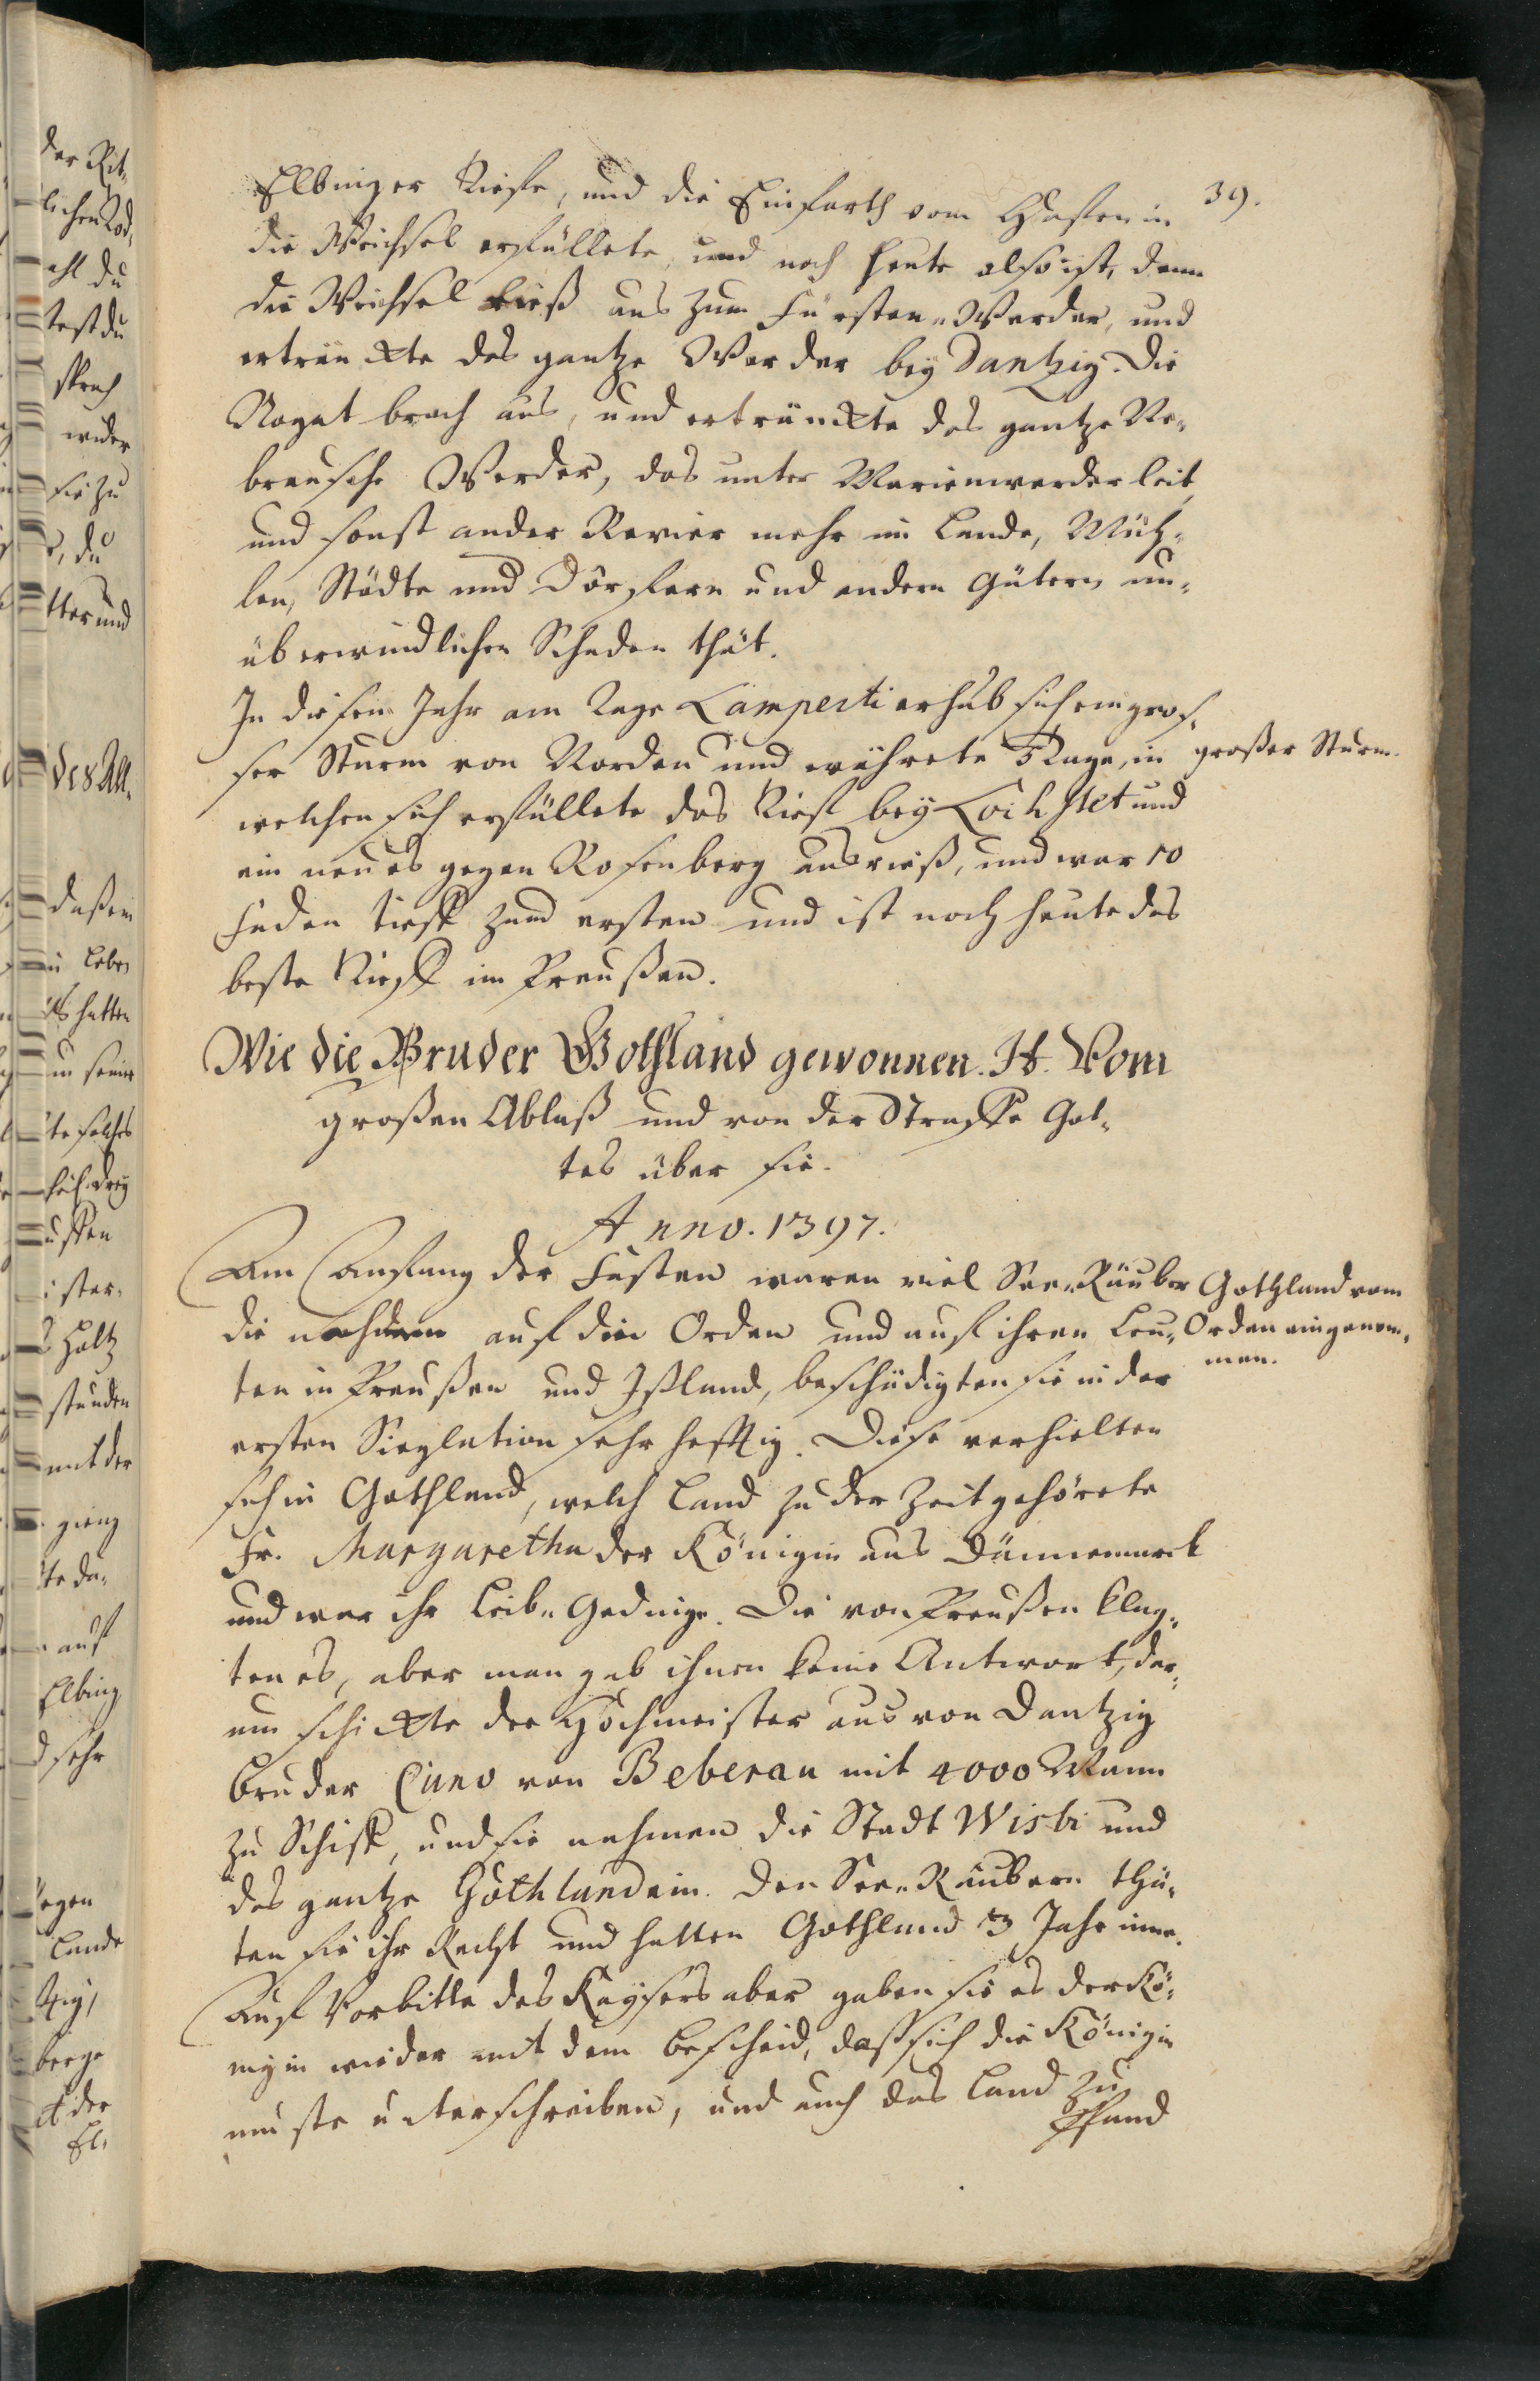 39.
Elbinger Tieffe, und die Einfarth vom Hasten in
die Weichsel erfüllete, und noch heute also ist, denn
die Weichsel rieß aus zum Fürsten-Werder, und
ertränckte das gantze Werder bey Dantzig. Die
Nogat brach aus, und ertränckte das gantze Ne-
brausche Werder, das unter Marienwerder leit,
und sonst ander Revier mehr im Lande, Müh-
len, Städte und Dörffern und andern Gütern un-
überwindlichen Schaden thät.
In diesem Jahr am Tage Lamperti erhub sich ein gros-
ser Sturm von Norden und währete 3 Tage, in
großer Sturm.
welchen sich erfüllete das Tieff bey Lochstet und
ein neues gegen Rosenberg ausrieß, und war 10
Faden tieff zum ersten und ist noch heute das
beste Tieff im Preußen.
Wie die Bruder Gothland gewonnen. It. Vom
großen Ablaß und von der Straffe Got-
tes über sie.
Anno. 1397.
Am Anfang der Fasten waren viel See-Räuber
Gothland vom
Orden eingenom-
men.
die nachdem auf den Orden und auf ihren Leu-
ten in Preußen und Ißland, beschädigten sie in der
ersten Sieglation sehr hefftig. Diese verhielten
sich in Gothland, welch Land zu der Zeit gehörete
Fr. Margaretha der Königin aus Dännemarck
und war ihr Leib-Gedinge. Die von Preußen klag-
ten es, aber man gab ihnen keine Antwort, dar-
um schickte der Hochmeister aus von Dantzig
bruder Cuno von Beberau mit 4000 Mann
zu Schiff, und sie nahmen die Stadt Wisbi und
das gantze Gothland ein. Den See-Räubern thä-
ten sie ihr Recht und hatten Gothland 3 Jahr inne.
Auf Vorbitte des Kaysers aber gaben sie es der Kö-
nigin wieder mit dem bescheid, daß sich die Königin
muste unterschreiben, und auch das Land zu
Pfand